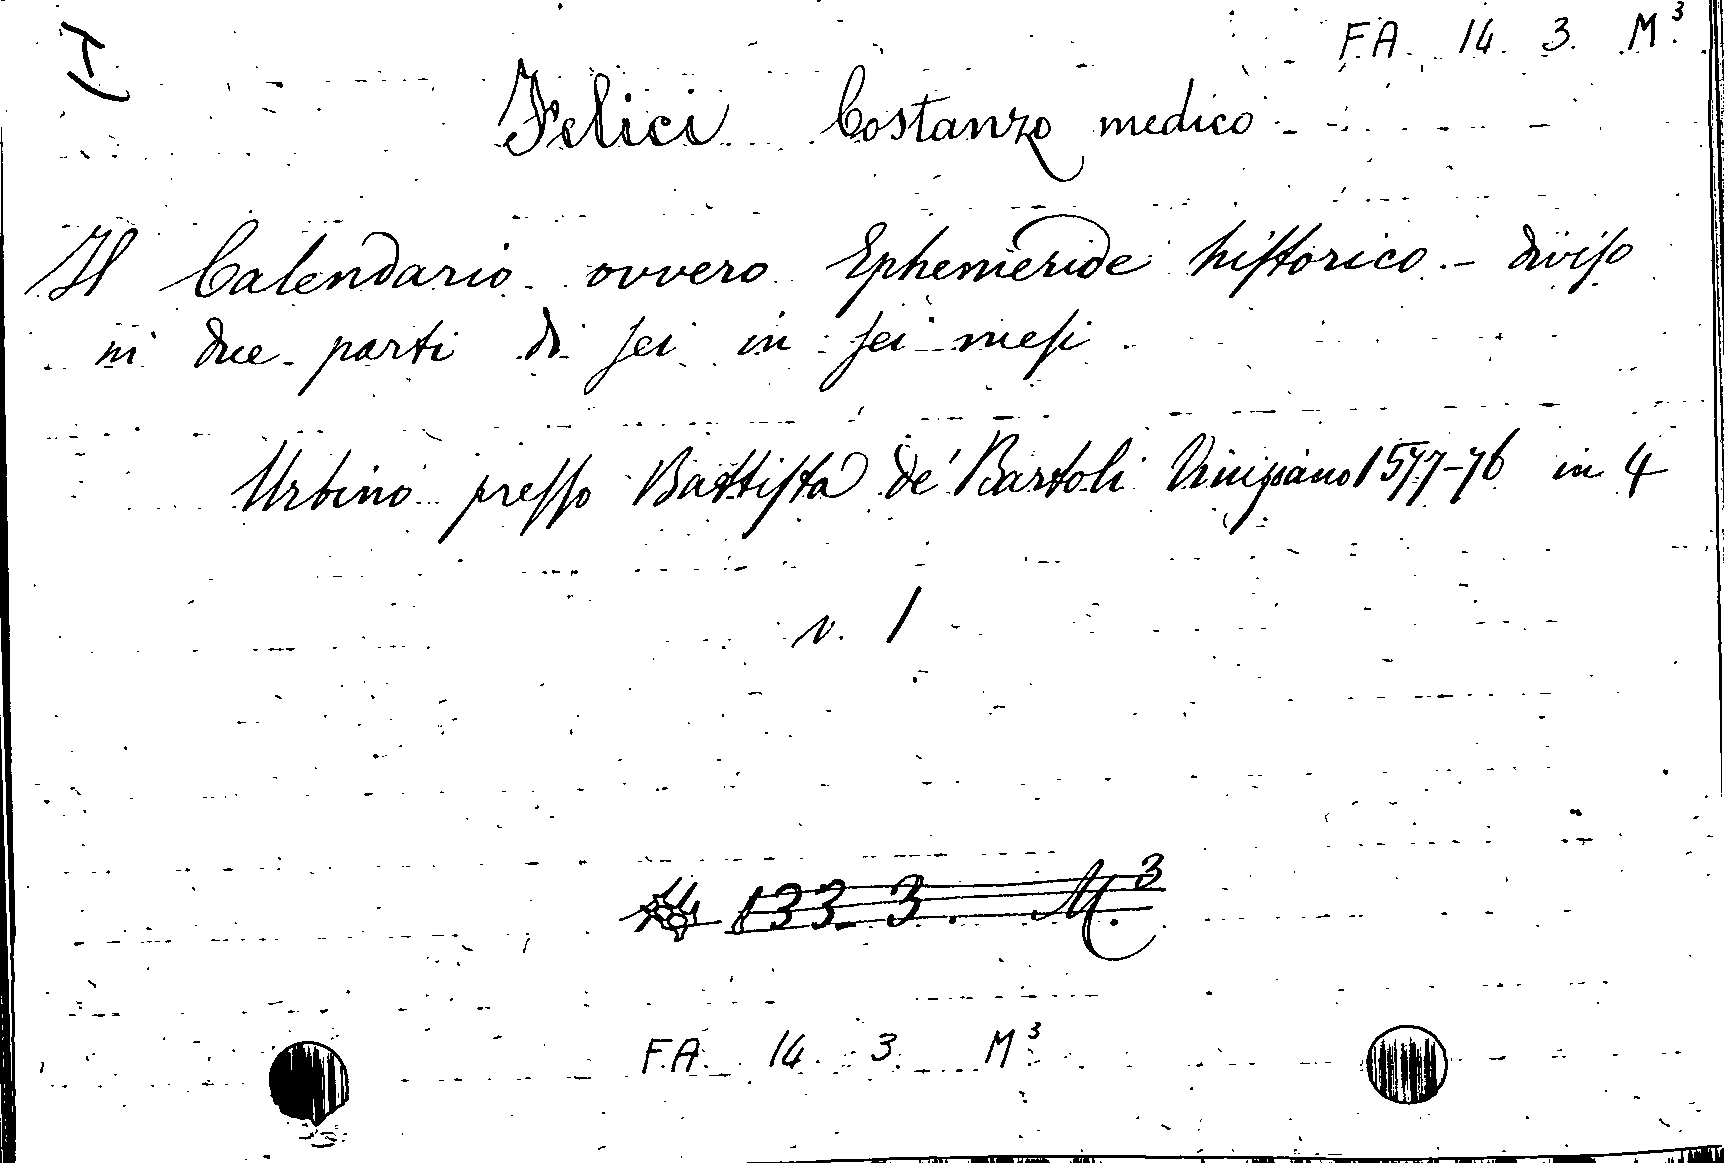 FA. 14. 3. M.3
Felici Costanzo medico
Il Calendario ovvero Ephemeride historico - diviso
in due parti di sei in sei mesi
Urbino presso Battista de' Bartoli 1577-76 in 4
v. 1
133 3. M.3
F.A. 14. 3. M3